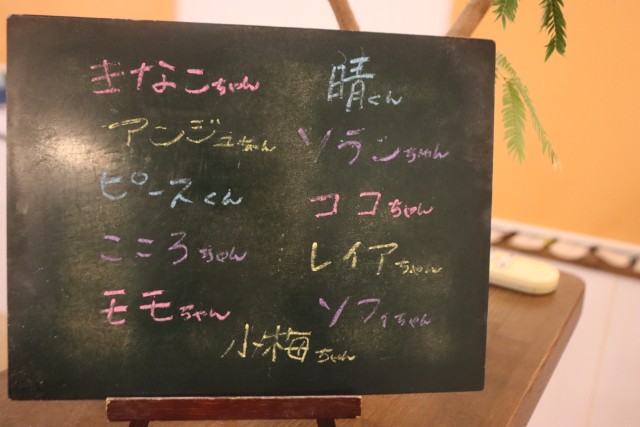 きなこちゃん
晴くん
アンジュちゃん
ソランちゃん
ピースくん
ココちゃん
こころちゃん
レイアちゃん
モモちゃん
ソフィちゃん
小梅ちゃん